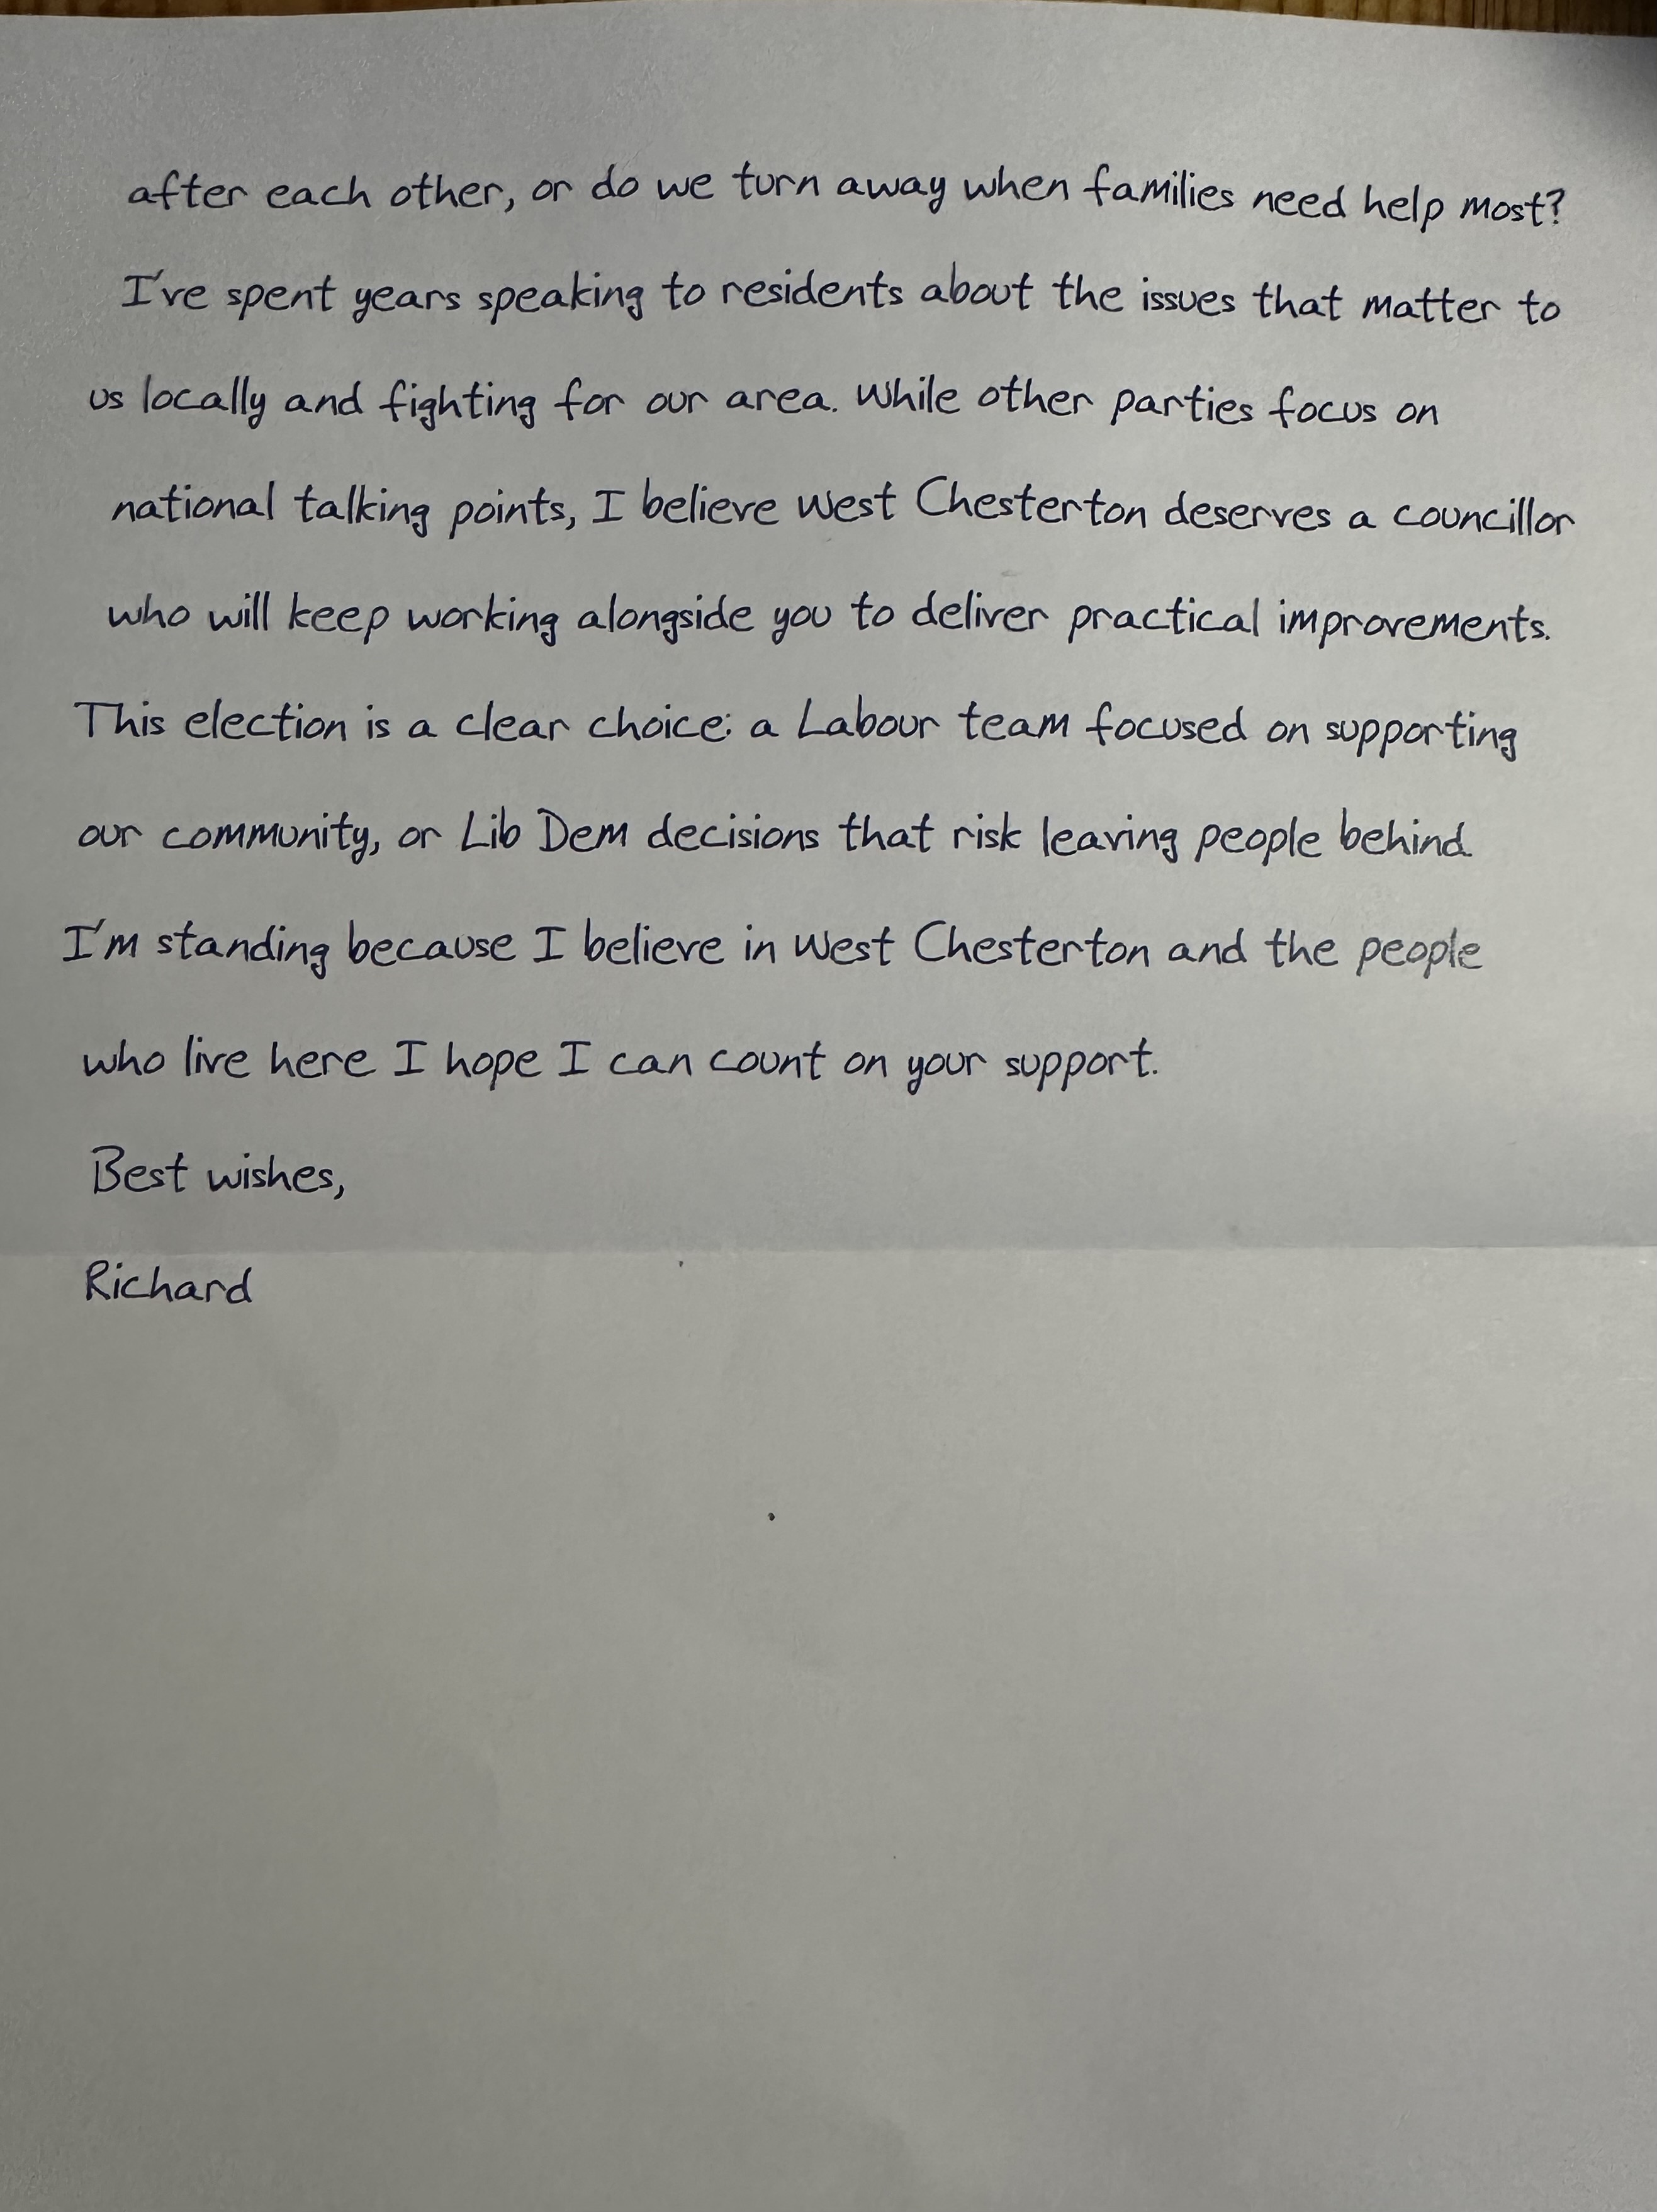 after each other, or do we turn away when families need help most?
I've spent years speaking to residents about the issues that matter to
us locally and fighting for our area. While other parties focus on
national talking points, I believe West Chesterton deserves a councillor
who will keep working alongside you to deliver practical improvements.
This election is a clear choice: a Labour team focused on supporting
our community, or Lib Dem decisions that risk leaving people behind.
I'm standing because I believe in West Chesterton and the people
who live here I hope I can count on your support.
Best wishes,
Richard